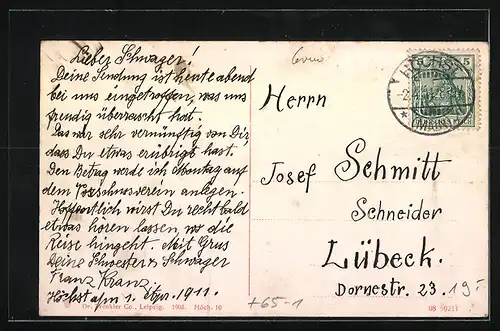 Lieber Schwager!
Deine Sendung ist heute abend
bei uns eingetroffen, was uns
freudig überrascht hat.
Das war sehr vernünftig von Dir,
dass Du etwas erübrigt hast.
Den Betrag werde ich Montag auf
dem Vorschussverein anlegen.
Hoffentlich wirst Du recht bald
etwas hören lassen, wo die
Reise hingeht. Mit Grus
Deine Schwester & Schwager
Franz Kranz.
Höchst a/m 1. 1911.
Herrn
Josef Schmitt
Schneider
Lübeck.
Dornestr. 23. 19.
HÖCHST
(MAIN)
5
+65-1
Dr. Co., Leipzig. 1908. Höch. 10
08 99211